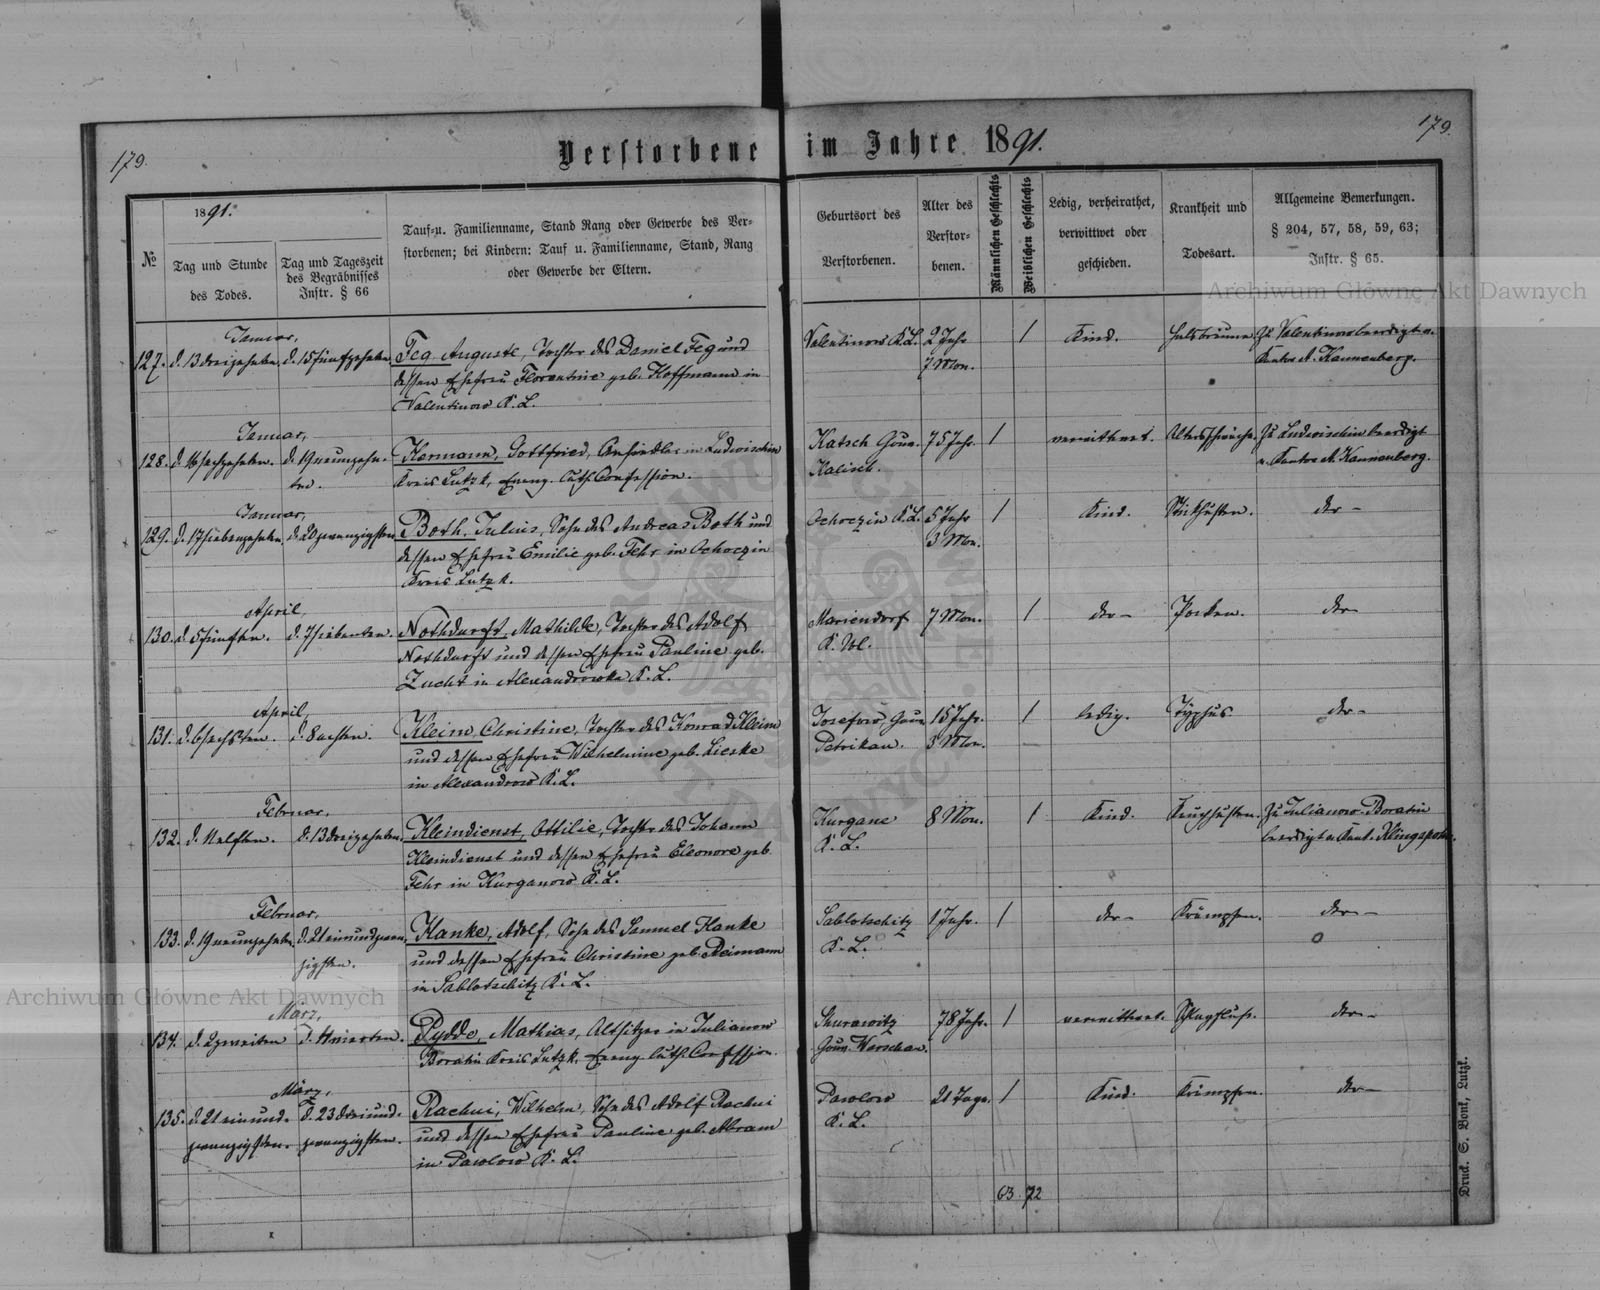 179.
179.
Verstorbene im Jahre 1891.
№
1891.
Tag und Stunde
des Todes.
Tag und Tageszeit
des Begräbnisses
Instr. § 66
Tauf- u. Familienname, Stand Rang oder Gewerbe des Ver-
storbenen; bei Kindern: Tauf u. Familienname, Stand, Rang
oder Gewerbe der Eltern.
Geburtsort des
Verstorbenen.
Alter des
Verstor-
benen.
Männlichen Geschlechts
Weiblichen Geschlechts
Ledig, verheirathet,
verwittwet oder
geschieden.
Krankheit und
Todesart.
Allgemeine Bemerkungen.
§ 204, 57, 58, 59, 63;
Instr. § 65.
Archiwum Główne Akt Dawnych
Januar,
127. d. 13 dreizehnten. d. 15 fünfzehnten.
Feg Auguste, Tochter des Daniel Feg und
dessen Ehefrau Florentine geb. Hoffmann in
Valentinow K. L.
Valentinow K. L.
2 Jahr
7 Mon.
1
Kind.
Halsbräune
Zu Valentinow beerdigt v.
Kantor A. Kannenberg.
Januar,
128. d. 16 sechzehnten. d. 19 neunzehn-
ten.
Hermann, Gottfried, Ansiedler in Ludwischin
Kreis Lutzk, Evang. Luth. Confession.
Katsch Gouv.
Kalisch.
75 Jahr.
1
verwittwet.
Altersschwäche.
Zu Ludwischin beerdigt
v. Kantor A. Kannenberg.
Januar,
129. d. 17 siebenzehnten. d. 20 zwanzigsten
Both, Julius, Sohn des Andreas Both und
dessen Ehefrau Emilie geb. Fehr in Ochoczin
Kreis Lutzk.
Ochoczin K. L.
5 Jahr
3 Mon.
1
Kind.
Stickhusten.
dto —
April,
130. d. 5 fünften. d. 7 siebenten.
Nothdurft, Mathilde, Tochter des Adolf
Nothdurft und dessen Ehefrau Pauline geb.
Zucht in Alexandrowka K. L.
Mariendorf
K. Wl.
7 Mon.
1
dto —
Pocken.
dto —
April,
131. d. 6 sechsten. d. 8 achten.
Kleim, Christine, Tochter des Konrad Kleim
und dessen Ehefrau Wilhelmine geb. Lieske
in Alexandrow K. L.
Josefow, Gouv.
Petrikau.
15 Jahr.
3 Mon.
1
ledig.
Typhus
dto —
Februar,
132. d. 11 elften. d. 13 dreizehnten.
Kleindienst, Ottilie, Tochter des Johann
Kleindienst und dessen Ehefrau Eleonore geb.
Fehr in Kurganow K. L.
Kurgane
K. L.
8 Mon.
1
Kind.
Keuchhusten.
Zu Julianow-Boratin
beerdigt v. Kant. Klingspohn.
Februar,
133. d. 19 neunzehnten. d. 21 einundzwan-
zigsten.
Hanke, Adolf, Sohn des Samuel Hanke
und dessen Ehefrau Christine geb. Reimann
in Sablotschitz K. L.
Sablotschitz
K. L.
1 Jahr.
1
dto —
Krämpfen.
dto —
Archiwum Główne Akt Dawnych
März,
134. d. 2 zweiten d. 4 vierten.
Pydde, Mathias, Altsitzer in Julianow
Boratin Kreis Lutzk, Evang. Luth. Confession.
Skurawitz
Gouv. Warschau.
78 Jahr.
1
verwittwet.
Schlagfluß.
dto —
März,
135. d. 21 einund- d. 23 dreiund-
zwanzigsten. zwanzigsten.
Rachui, Wilhelm, Sohn des Adolf Rachui
und dessen Ehefrau Pauline geb. Abram
in Pawlow K. L.
Pawlow
K. L.
21 Tage.
1
Kind.
Krämpfen.
dto —
63 72
Druck. S. Bonk, Lutzk.